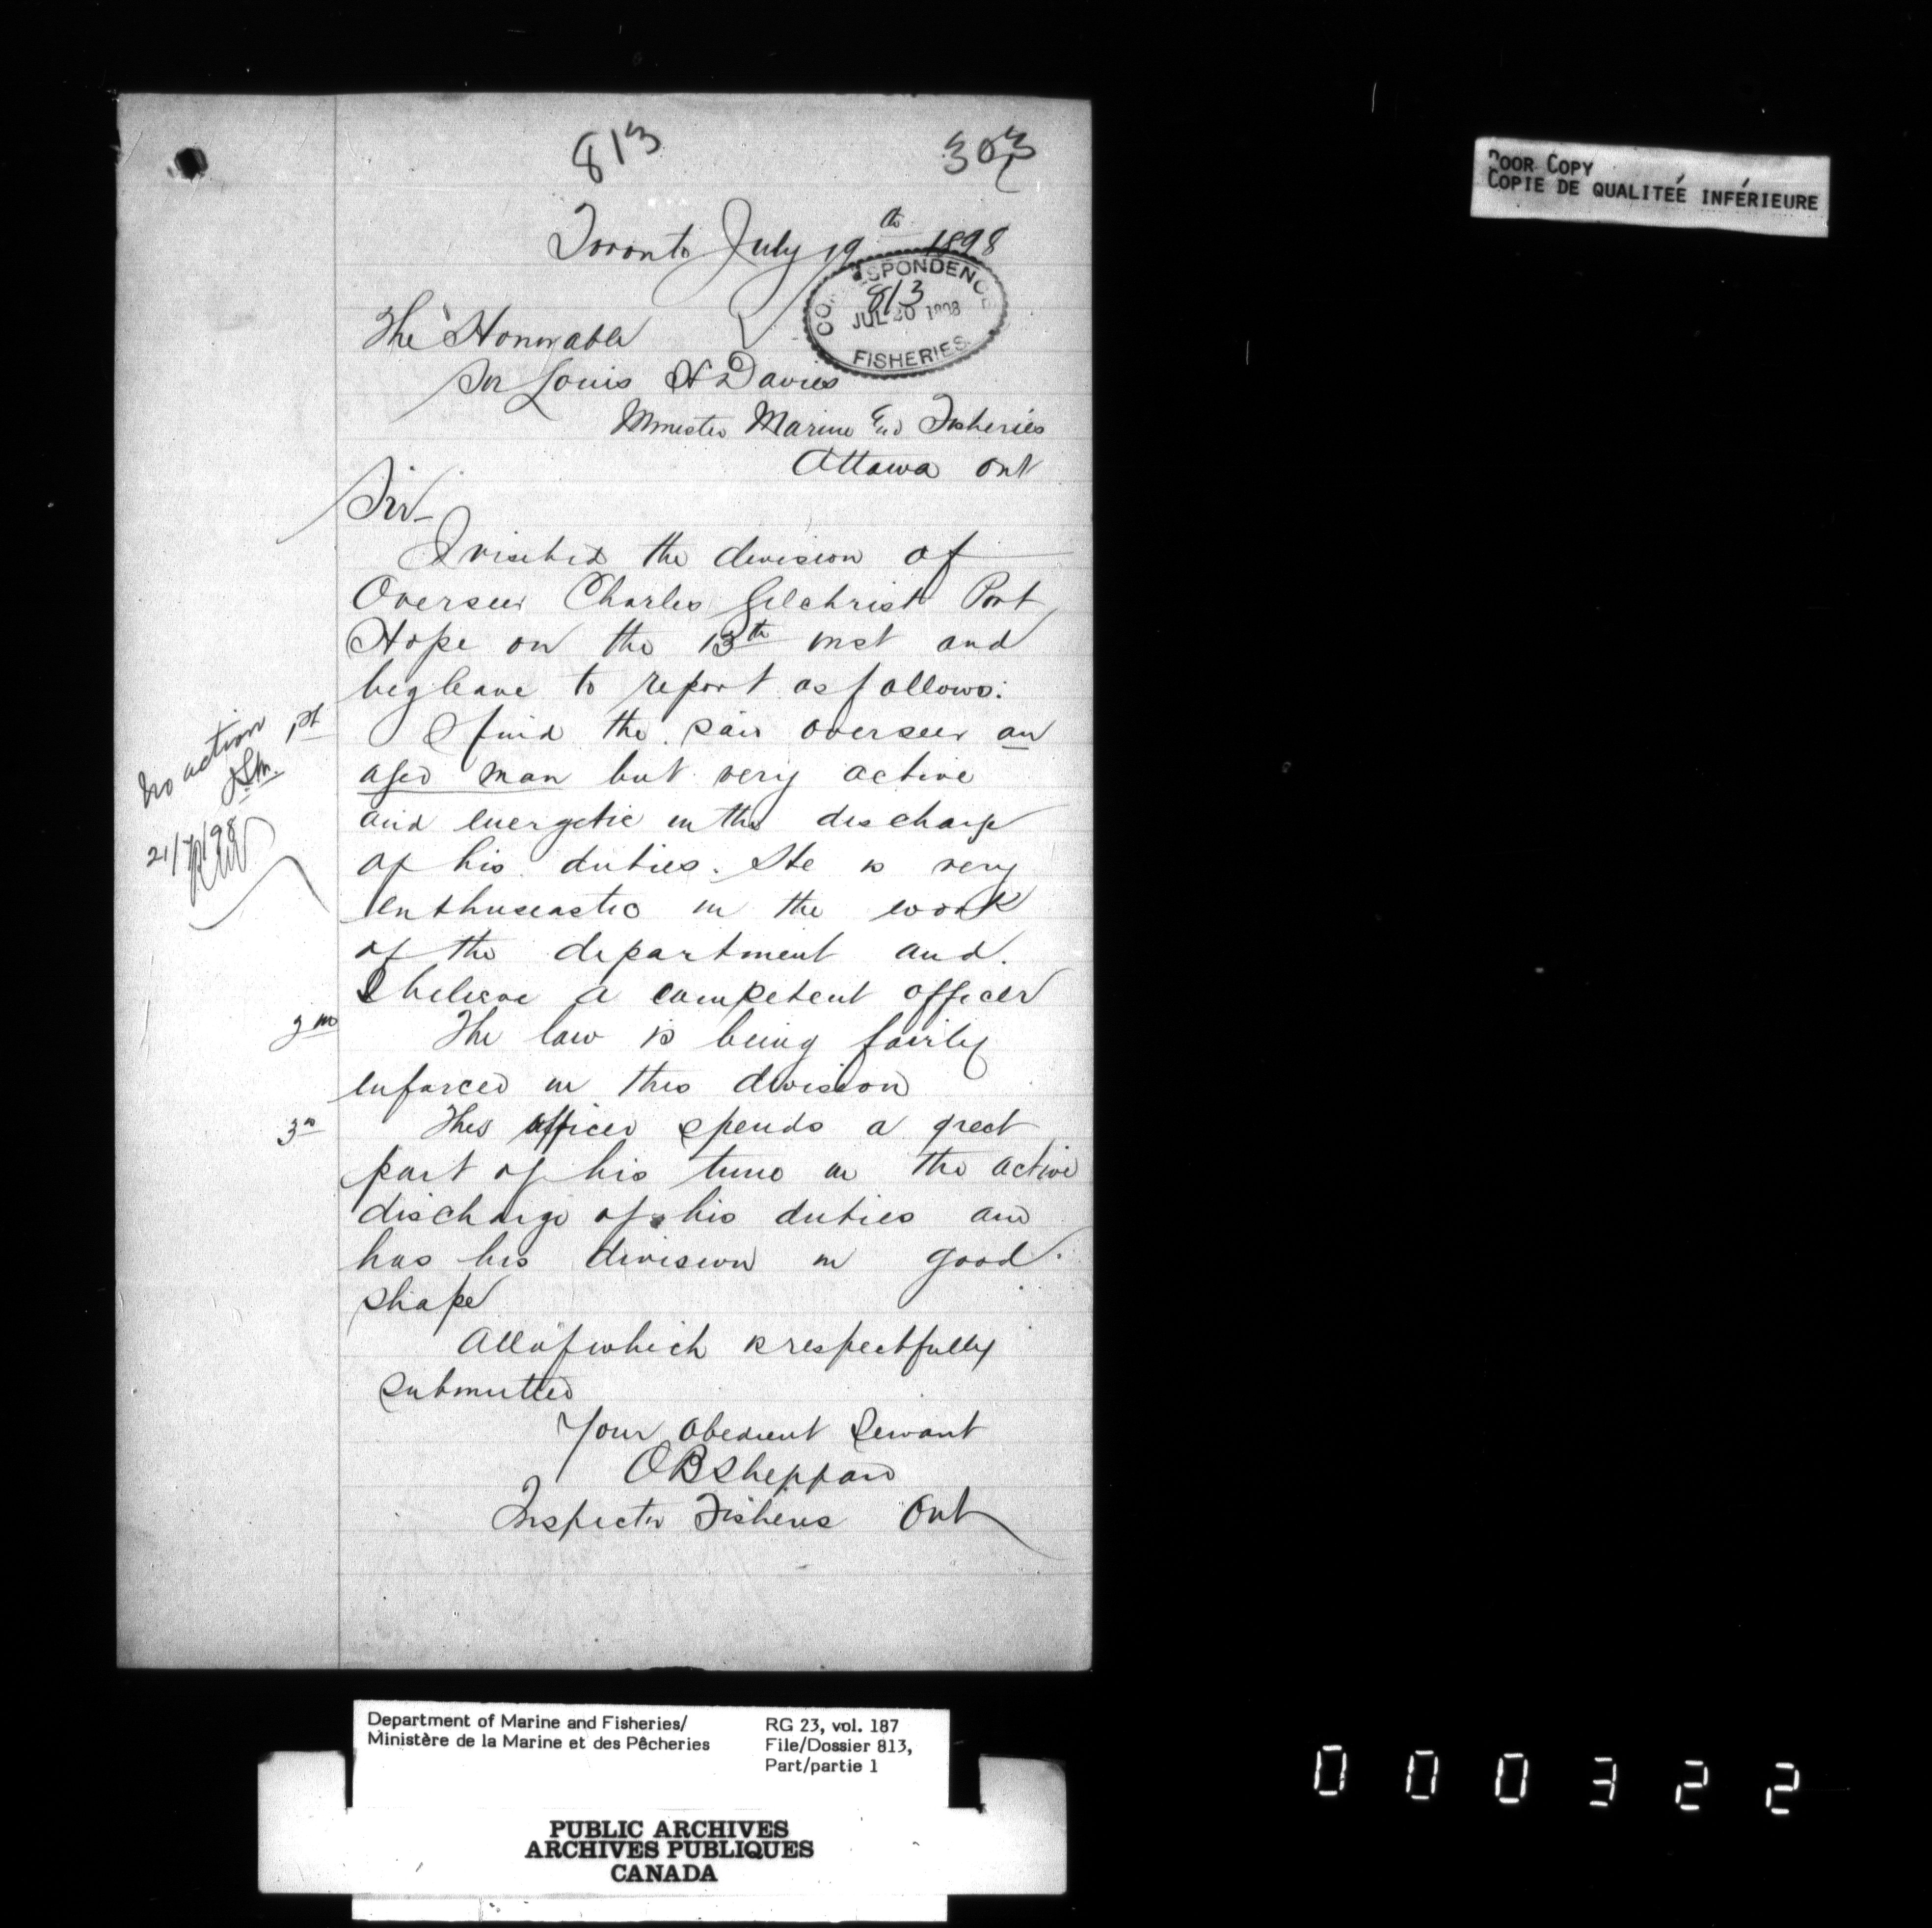 813
303
Toronto July 19th 1898
CORRESPONDENCE
813
JUL 20 1898
FISHERIES.
The Honorable
Sir Louis H Davies
Minister Marine and Fisheries
Ottawa Ont
Sir -
I visited the division of
Overseer Charles Gilchrist Port
Hope on the 13th inst and
beg leave to report as follows:
1st I find the said overseer an
aged man but very active
and energetic in the discharge
of his duties. He is very
enthuseastic in the work
of the department and
I believe a competent officer
2nd The law is being fairly
enforced in this division
3rd This officer spends a great
part of his time in the active
discharge of his duties and
has his division in good
shape
All of which is respectfully
submitted
Your Obedient Servant
O B Sheppard
Inspector Fisheries Ont
No action
21/7/98
POOR COPY
COPIE DE QUALITEÉ INFÉRIEURE
Department of Marine and Fisheries/
Ministère de la Marine et des Pêcheries
RG 23, vol. 187
File/Dossier 813,
Part/partie 1
PUBLIC ARCHIVES
ARCHIVES PUBLIQUES
CANADA
000322